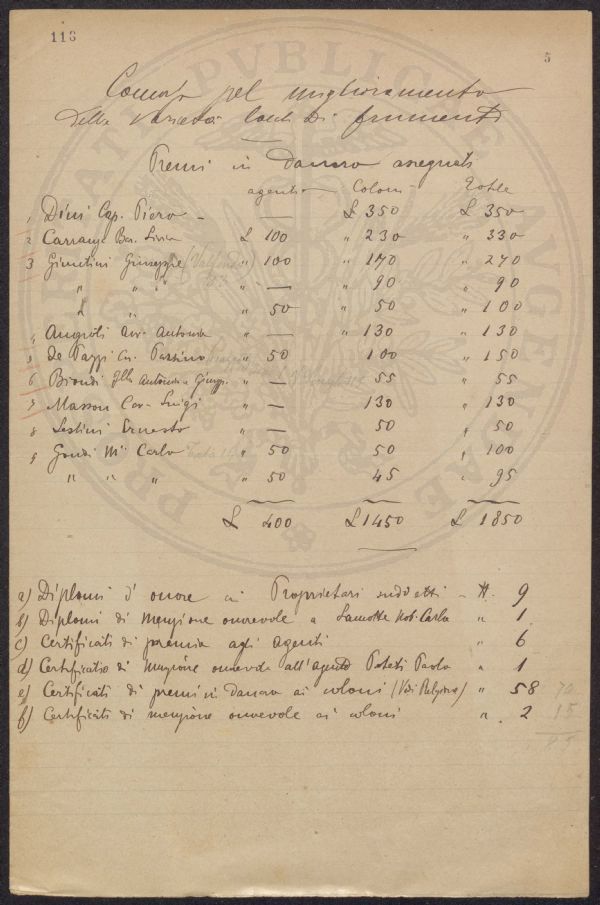 116
5
Concorso pel miglioramento
delle Varietà locali di frumenti
Premi in danaro assegnati
agenti Coloni Totale
1 Dini Cap. Piero — £ 350 £ 350
2 Carrange Bar. Livia £ 100 " 230 " 330
3 Giuntini Giuseppe " 100 " 170 " 270
" " " — " 90 " 90
" " 50 " 50 " 100
4 Antonio " — " 130 " 130
5 de Pazzi Pazzino " 50 100 " 150
6 Biondi Antonio e Giuseppe " — " 55 " 55
7 Masson Cav. Luigi " — 130 " 130
8 Sestini Ernesto " — 50 " 50
9 Gondi Mse Carlo " 50 50 " 100
" " " " 50 " 45 " 95
£ 400 £ 1450 £ 1850
a) Diplomi d'onore ai Proprietari suddetti - N. 9
b) Diplomi di menzione onorevole a Lamotte Nob. Carlo " 1
c) Certificati di premio agli agenti " 6
d) Certificato di menzione onorevole all'agente Poteti Paolo " 1
e) Certificati di premi in danaro ai coloni (Vedi) " 58 70
f) Certificati di menzione onorevole ai coloni " 2 15
85